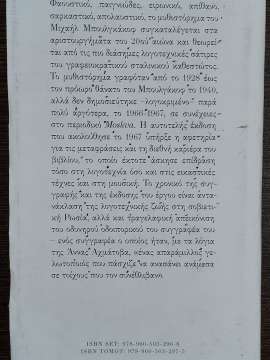 Φαουστικό, παιγνιώδες, ειρωνικό, απίθανο,
σαρκαστικό, απολαυστικό, το μυθιστόρημα του
Μιχαήλ Μπουλγκάκοφ συγκαταλέγεται στα
αριστουργήματα του 20ού αιώνα και θεωρεί-
ται από τις πιο διάσημες λογοτεχνικές σάτιρες
του γραφειοκρατικού σταλινικού καθεστώτος.
Το μυθιστόρημα γραφόταν από το 1928 έως
τον πρόωρο θάνατο του Μπουλγκάκοφ το 1940,
αλλά δεν δημοσιεύτηκε –λογοκριμένο– παρά
πολύ αργότερα, το 1966-1967, σε συνέχειες
στο περιοδικό Moskva. Η αυτοτελής έκδοση
που ακολούθησε το 1967 υπήρξε η αφετηρία
για τις μεταφράσεις και τη διεθνή καριέρα του
βιβλίου, το οποίο έκτοτε άσκησε επίδραση
τόσο στη λογοτεχνία όσο και στις εικαστικές
τέχνες και στη μουσική. Το χρονικό της συγ-
γραφής και της έκδοσης του έργου είναι αντα-
νάκλαση της λογοτεχνικής ζωής στη σοβιετι-
κή Ρωσία, αλλά και τραγελαφική απεικόνιση
του οδυνηρού οδοιπορικού του συγγραφέα του
– ενός συγγραφέα ο οποίος ήταν, με τα λόγια
της Άννας Αχμάτοβα, «ένας απαράμιλλος γε-
λωτοποιός που πάσχιζε να ανασάνει ανάμεσα
σε τοίχους που τον συνέθλιβαν».
ISBN SET: 978-960-503-296-8
ISBN ΤΟΜΟΥ: 978-960-503-297-5